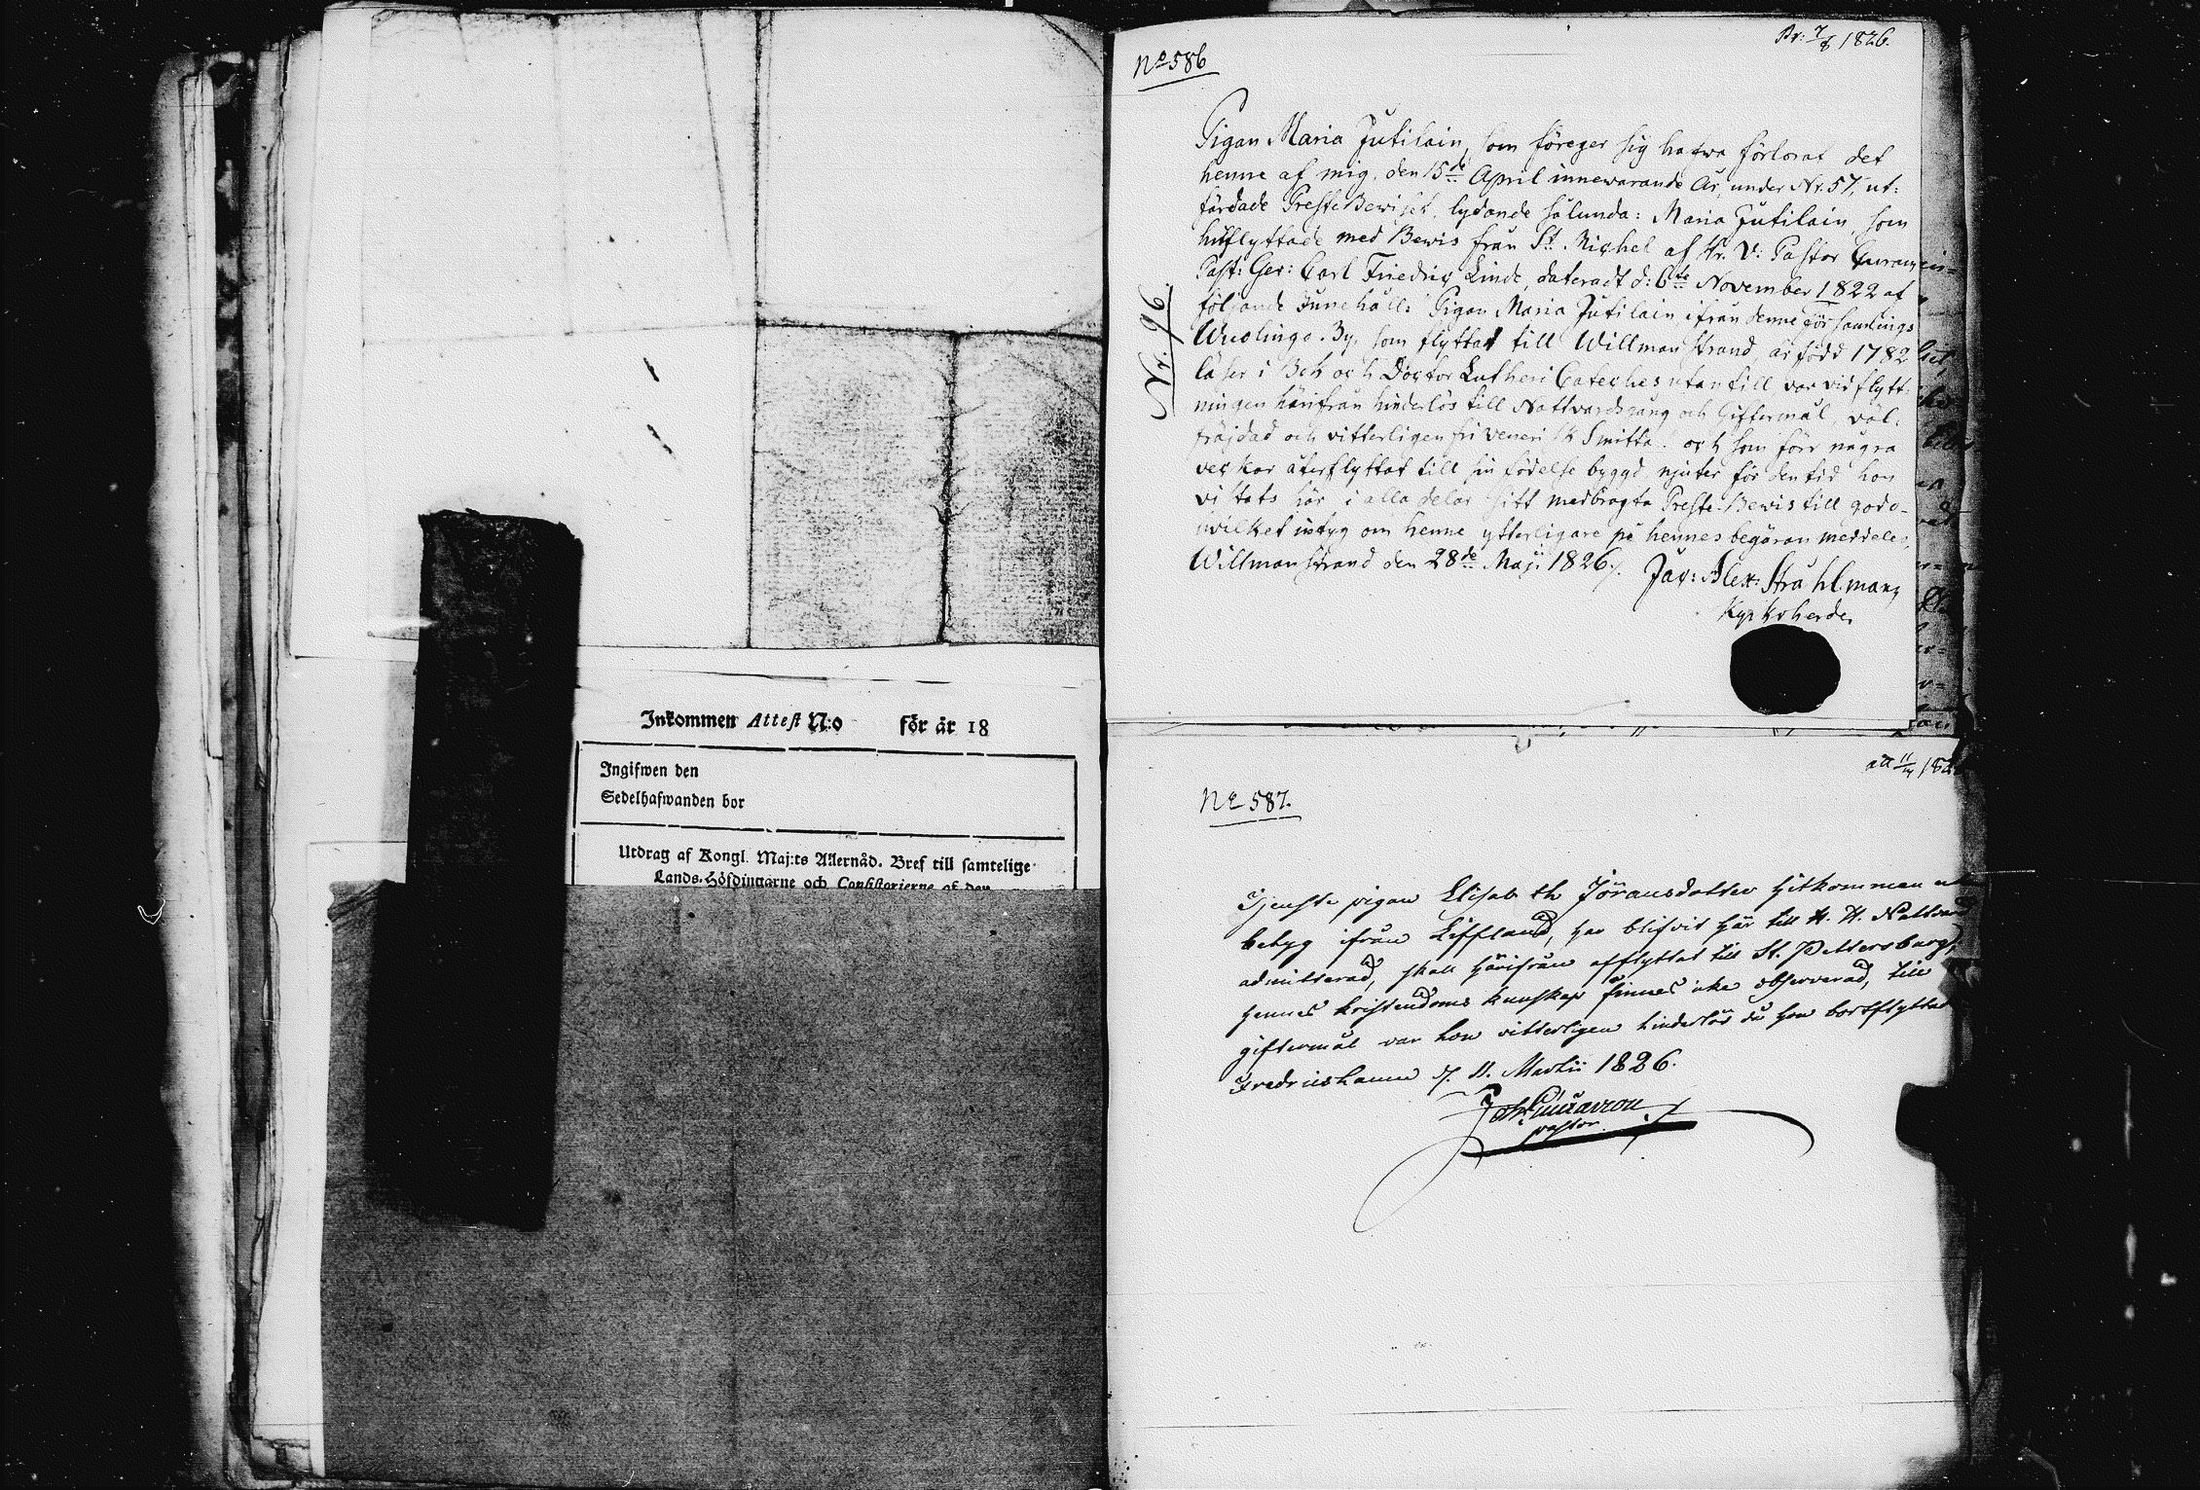 Inkommen Attest N:o för år 18
Ingifwen den
Sedelhafwanden bor
Utdrag af Kongl. Maj:ts Allernåd. Bref till samtelige
Lands-Höfdingarne och Consistorierne af den
No 586
Pr: 7/8 1826.
Nr. 96.
Pigan Maria Jutilain, som föreger sig hafwa förlorat det
henne af mig, den 15de April innewarande År, under Nr. 57, ut:
färdade PresteBewiset, lydande sålunda: Maria Jutilain, som
hitflyttade med Bewis från St. Michel af Hr. V: Pastor
Past: Ger: Carl Friedric Linde, dateradt d: 6te November 1822 af
följande Innehåll: Pigan Maria Jutilain ifrån denne Församlings
By, som flyttat till Willmanstrand, är född 1782
läser i Bok och Doctor Lutheri Cateches utantill var vid flytt:
ningen härifrån hinderlös till Nattvardsgång och Giftermål, väl:
fräjdad och vitterligen fri Venerisk Smitta: och som förr några
veckor återflyttat till sin födelse bygd njuter för den tid hon
vistats här i alla delar sitt medbragta Preste-Bewis till godo-
hvilket intyg om henne ytterligare på hennes begäran meddeles,
Willmanstrand den 28de Maji 1826.
Jac: Alex: Strahlman,
Kyrkoherde.
att 11/4 182
No 587.
Tjenste pigan Elisabeth Jöransdotter hitkommen
betyg ifrån Liffland, har blifvit här till H. H. Nattvard
admitterad, skall härifrån afflyttat till St. Pettersburg,
hennes kristendoms kunskap finnes icke observerad, till
giftermål var hon vitterligen hinderlös då hon bortflyttad
Fredricshamn d. 11. Martii 1826.
Joh.
pastor.